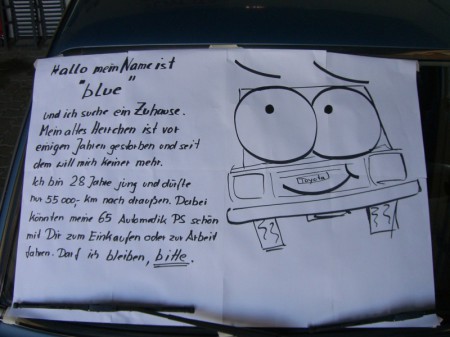 Hallo mein Name ist
"blue"
und ich suche ein Zuhause.
Mein altes Herrchen ist vor
einigen Jahren gestorben und seit
dem will mich keiner mehr.
Ich bin 28 Jahre jung und dürfte
nur 55000,- km nach draußen. Dabei
könnten meine 65 Automatik PS schön
mit Dir zum Einkaufen oder zur Arbeit
fahren. Darf ich bleiben, bitte.
Toyota